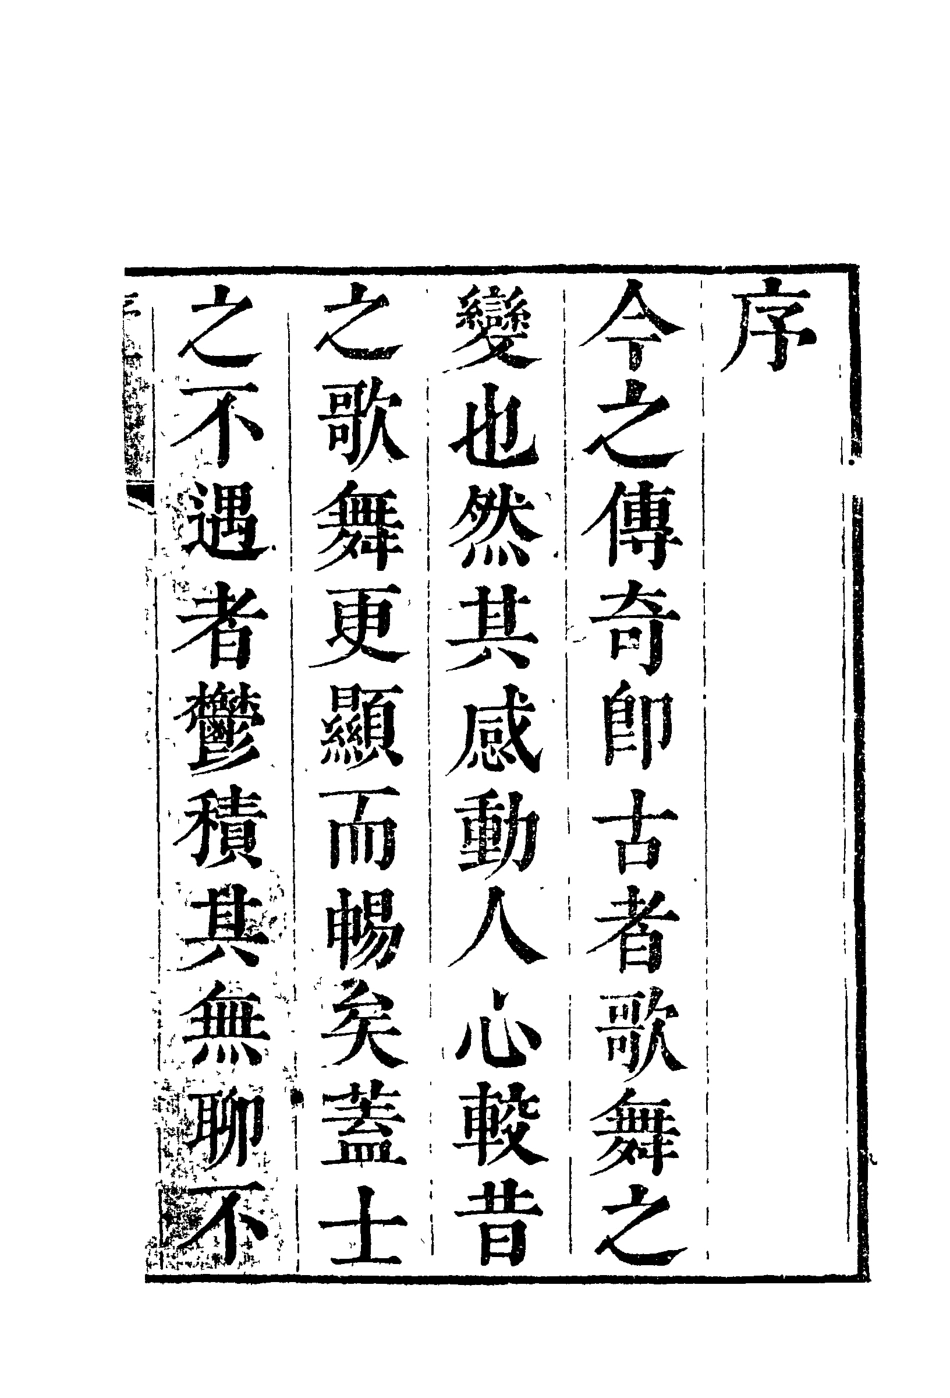 序
今之傳奇卽古者歌舞之
變也然其感動人心較昔
之歌舞更顯而暢矣蓋士
之不遇者鬱積其無聊不